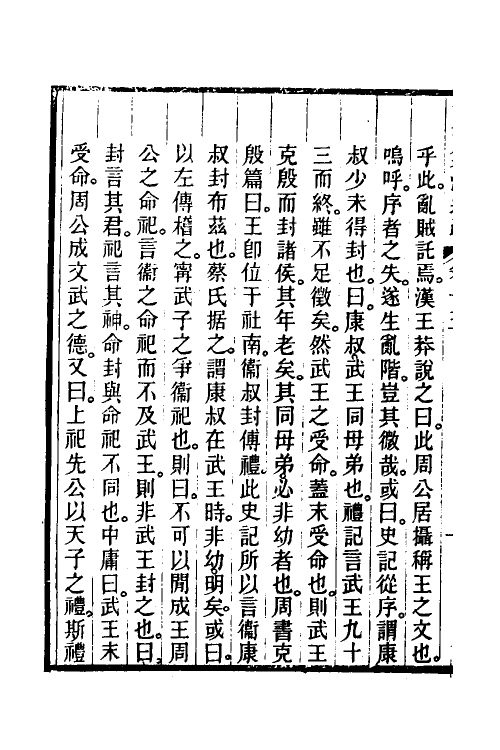 乎此。亂賊託焉。漢王莽說之曰。此周公居攝稱王之文也。
嗚呼。序者之失。遂生亂階。豈其微哉。或曰。史記從序。謂康
叔少未得封也。曰。康叔武王同母弟也。禮記言武王九十
三而終。雖不足徵矣。然武王之受命。蓋末受命也。則武王
克殷而封諸侯。其年老矣。其同母弟。必非幼者也。周書克
殷篇曰。王卽位于社南。衞叔封傅禮。此史記所以言衞康
叔封布茲也。蔡氏据之。謂康叔在武王時。非幼明矣。或曰。
以左傳稽之。甯武子之爭衞祀也。則曰。不可以閒成王周
公之命祀。言衞之命祀而不及武王。則非武王封之也。曰。
封言其君。祀言其神。命封與命祀不同也。中庸曰。武王末
受命。周公成文武之德。又曰。上祀先公以天子之禮。斯禮